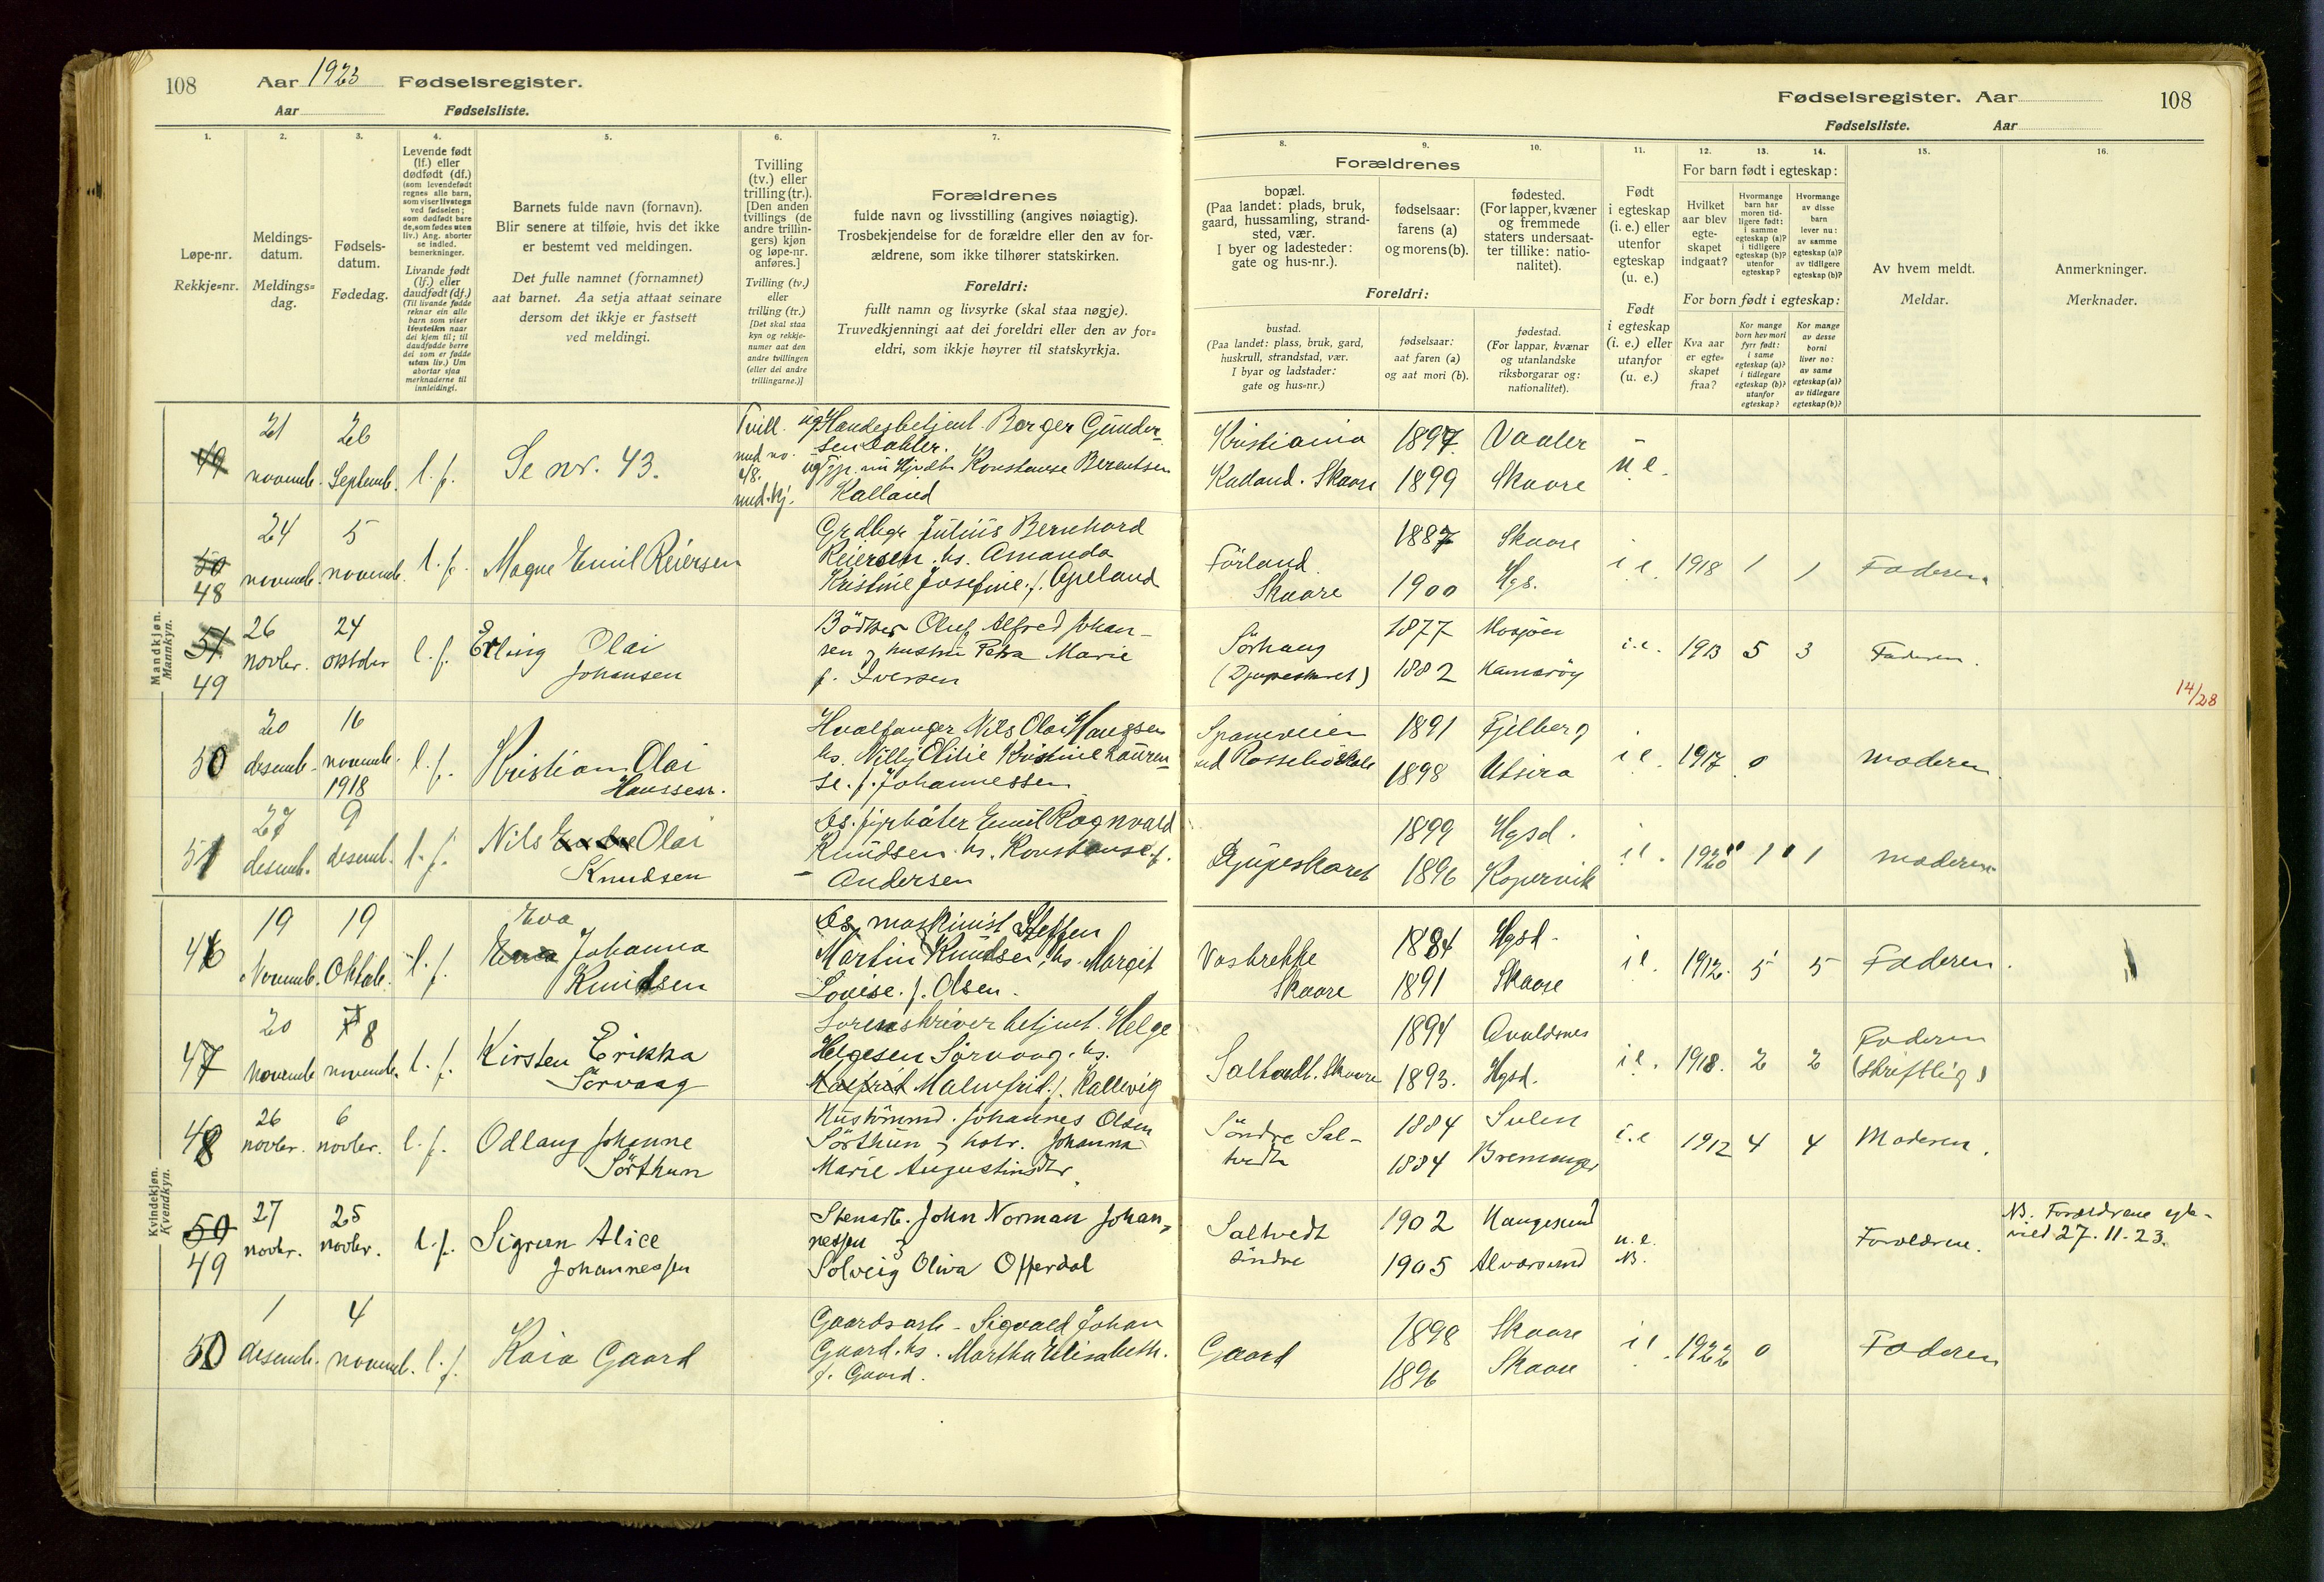 108
Aar 1923 Fødselsregister.
Aar Fødselsliste.
1. 2. 3. 4. 5. 6. 7.
Løpe-nr.
Rekkje=nr.
Meldings-
datum.
Meldings=
dag.
Fødsels-
datum.
Fødedag.
Levende født
(lf.) eller
dødfødt (df.)
(som levendefødt
regnes alle barn,
som viser livstegn
ved fødselen;
som dødfødt bare
de, som fødes uten
liv.) Ang. aborter
se indled.
bemerkninger.
Livande født
(lf.) eller
daudfødt (df.)
(Til livande fødde
reknar ein alle
barn som viser
livsteikn naar
dei kjem til; til
daudfødde berre
dei som er fødde
utan liv.) Um
abortar sjaa
merknaderne til
innleidingi.
Barnets fulde navn (fornavn).
Blir senere at tilføie, hvis det ikke
er bestemt ved meldingen.
Det fulle namnet (fornamnet)
aat barnet. Aa setja attaat seinare
dersom det ikkje er fastsett
ved meldingi.
Tvilling
(tv.) eller
trilling (tr.).
[Den anden
tvillings (de
andre trillin-
gers) kjøn
og løpe-nr.
anføres.]
Tvilling (tv.)
eller
trilling (tr.)
[Det skal staa
kyn og rekkje-
numer aat den
andre tvillingen
(eller dei andre
trillingarne.)]
Forældrenes
fulde navn og livsstilling (angives nøiagtig).
Trosbekjendelse for de forældre eller den av for-
ældrene, som ikke tilhører statskirken.
Foreldri:
fullt namn og livsyrke (skal staa nøgje).
Truvedkjenningi aat dei foreldri eller den av for=
eldri, som ikkje høyrer til statskyrkja.
Mandkjøn.
Mannkyn.
49
21
novemb.
26
Septemb.
l. f.
Se nr. 43.
Tvill.
med no.
48.
ug Handesbetjent Borger Gunder-
sen
ug Konstanse Berentsen
Kalland
50
48
24
novemb.
5
novemb.
l. f.
Magne Emil Reiersen
Grdbgr Julius Bernhard
Reiersen. hs. Amanda
Kristine Josefine. f. Apeland
51
49
26
novbr.
24
oktober
l. f.
Erling Olai
Johansen
Bödker Oluf Alfred Johan-
sen og hustru Petra Marie
f. Iversen
50
20
desemb.
16
novemb.
1918
l. f.
Kristian Olai
Hanssen.
Hvalfanger Nils Olai Hanssen
hs. Nilly Otilie Kristine Lauren-
se. f. Johannessen
51
27
desemb.
9
desemb.
l. f.
Nils Olai
Knudsen
Ds. fyrbøter Emil Ragnvald
Knudsen. hs. Konstanse. f.
Andersen
Kvindekjøn.
Kvendkyn.
46
19
Novemb.
19
Oktob.
l. f.
Eva
Johanna
Knudsen
Ds. maskinist Steffen
Martin Knudsen, hs. Margit
Lovise. f. Olsen.
47
20
novemb
8
novemb.
l. f.
Kirsten Erikka
Sörvaag
Sorenskriverbetjent. Helge
Helgesen Sörvaag. hs.
Malmfrid f. Kallevig
48
26
novbr.
6
novbr.
l. f.
Odlaug Johanne
Sörthun
Husmmd. Johannes Olsen
Sörthun og hstr. Johanna
Marie Augustinsdtr.
50
49
27
novbr.
25
novbr.
l. f.
Sigrun Alice
Johannessen
Stenarb. John Norman Johan-
nessen og
Solveig Oliva Offerdal
50
1
desemb.
4
novemb.
l. f.
Kaia Gaard
Gaardsarb - Sigvald Johan
Gaard. hs. Martha Elisabeth.
f. Gaard.
Fødselsregister. Aar 108
Fødselsliste. Aar
8. 9. 10. 11. 12. 13. 14. 15. 16.
Forældrenes
bopæl.
(Paa landet: plads, bruk,
gaard, hussamling, strand-
sted, vær.
I byer og ladesteder:
gate og hus-nr.).
fødselsaar:
farens (a)
og morens (b).
fødested.
(For lapper, kvæner
og fremmede
staters undersaat-
ter tillike: natio-
nalitet).
Foreldri:
bustad.
(Paa landet: plass, bruk, gard,
huskrull, strandstad, vær.
I byar og ladstader:
gate og hus=nr.)
fødselsaar:
aat faren (a)
og aat mori (b).
fødestad.
(For lappar, kvænar
og utanlandske
riksborgarar og:
nationalitet).
Født
i egteskap
(i. e.) eller
utenfor
egteskap
(u. e.)
Født
i egteskap
(i. e.) eller
utanfor
(u. e.)
For barn født i egteskap:
Hvilket
aar blev
egte-
skapet
indgaat?
Hvormange
barn har
moren tid-
ligere født:
i samme
egteskap (a)?
i tidligere
egteskap (b)?
utenfor
egteskap?
Hvormange
av disse
barn
lever nu:
av samme
egteskap (a)?
av tidligere
egteskap (b)?
For born født i egteskap:
Kva aar
er egte=
skapet
fraa?
Kor mange
born hev mori
fyrr født:
i same
egteskap (a)?
i tidlegare
egteskap (b)?
utanfor
egteskap?
Kor mange
av desse
borni
liver no:
av same
egteskap (a)?
av tidlegare
egteskap (b)?
Av hvem meldt.
Meldar.
Anmerkninger.
Merknader.
Kristiania 1897 Vaaler
Kalland. Skaare 1899 Skaare
u. e.
Förland
Skaare
1887 Skaare
1900 Hgs.
i. e. 1918 1 1 Faderen.
Sörhaug
(Djupeskaret)
1877 Mosjöen
1882 Hamarøy
i. e. 1913 5 3 Faderen.
14/28
Spanneveien
ved Rossebö skole
1891 Fjelberg
1898 Utsira
i. e. 1917 0 Moderen.
Djupeskaret
1899 Hgsd.
1896 Kopervik
i. e. 1920 1 1 moderen
Vasbrekke
Skaare
1884 Hgsd.
1891 Skaare
i. e. 1912. 5 5 Faderen.
Saltvedt. Skaare
1894 Avaldsnes
1893. Hgsd.
i. e. 1918. 2 2 Faderen
(skriftlig)
Söndre Sal-
tvedt
1884 Sulen
1884 Bremanger
i. e 1912 4 4 Moderen.
Saltvedt
söndre
1902 Haugesund
1905 Alversund
u. e.
NB.
Forældrene.
NB. Forældrene egte-
viet 27.11.23.
Gaard
1898 Skaare
1896 Skaare
i. e. 1922 0 Faderen